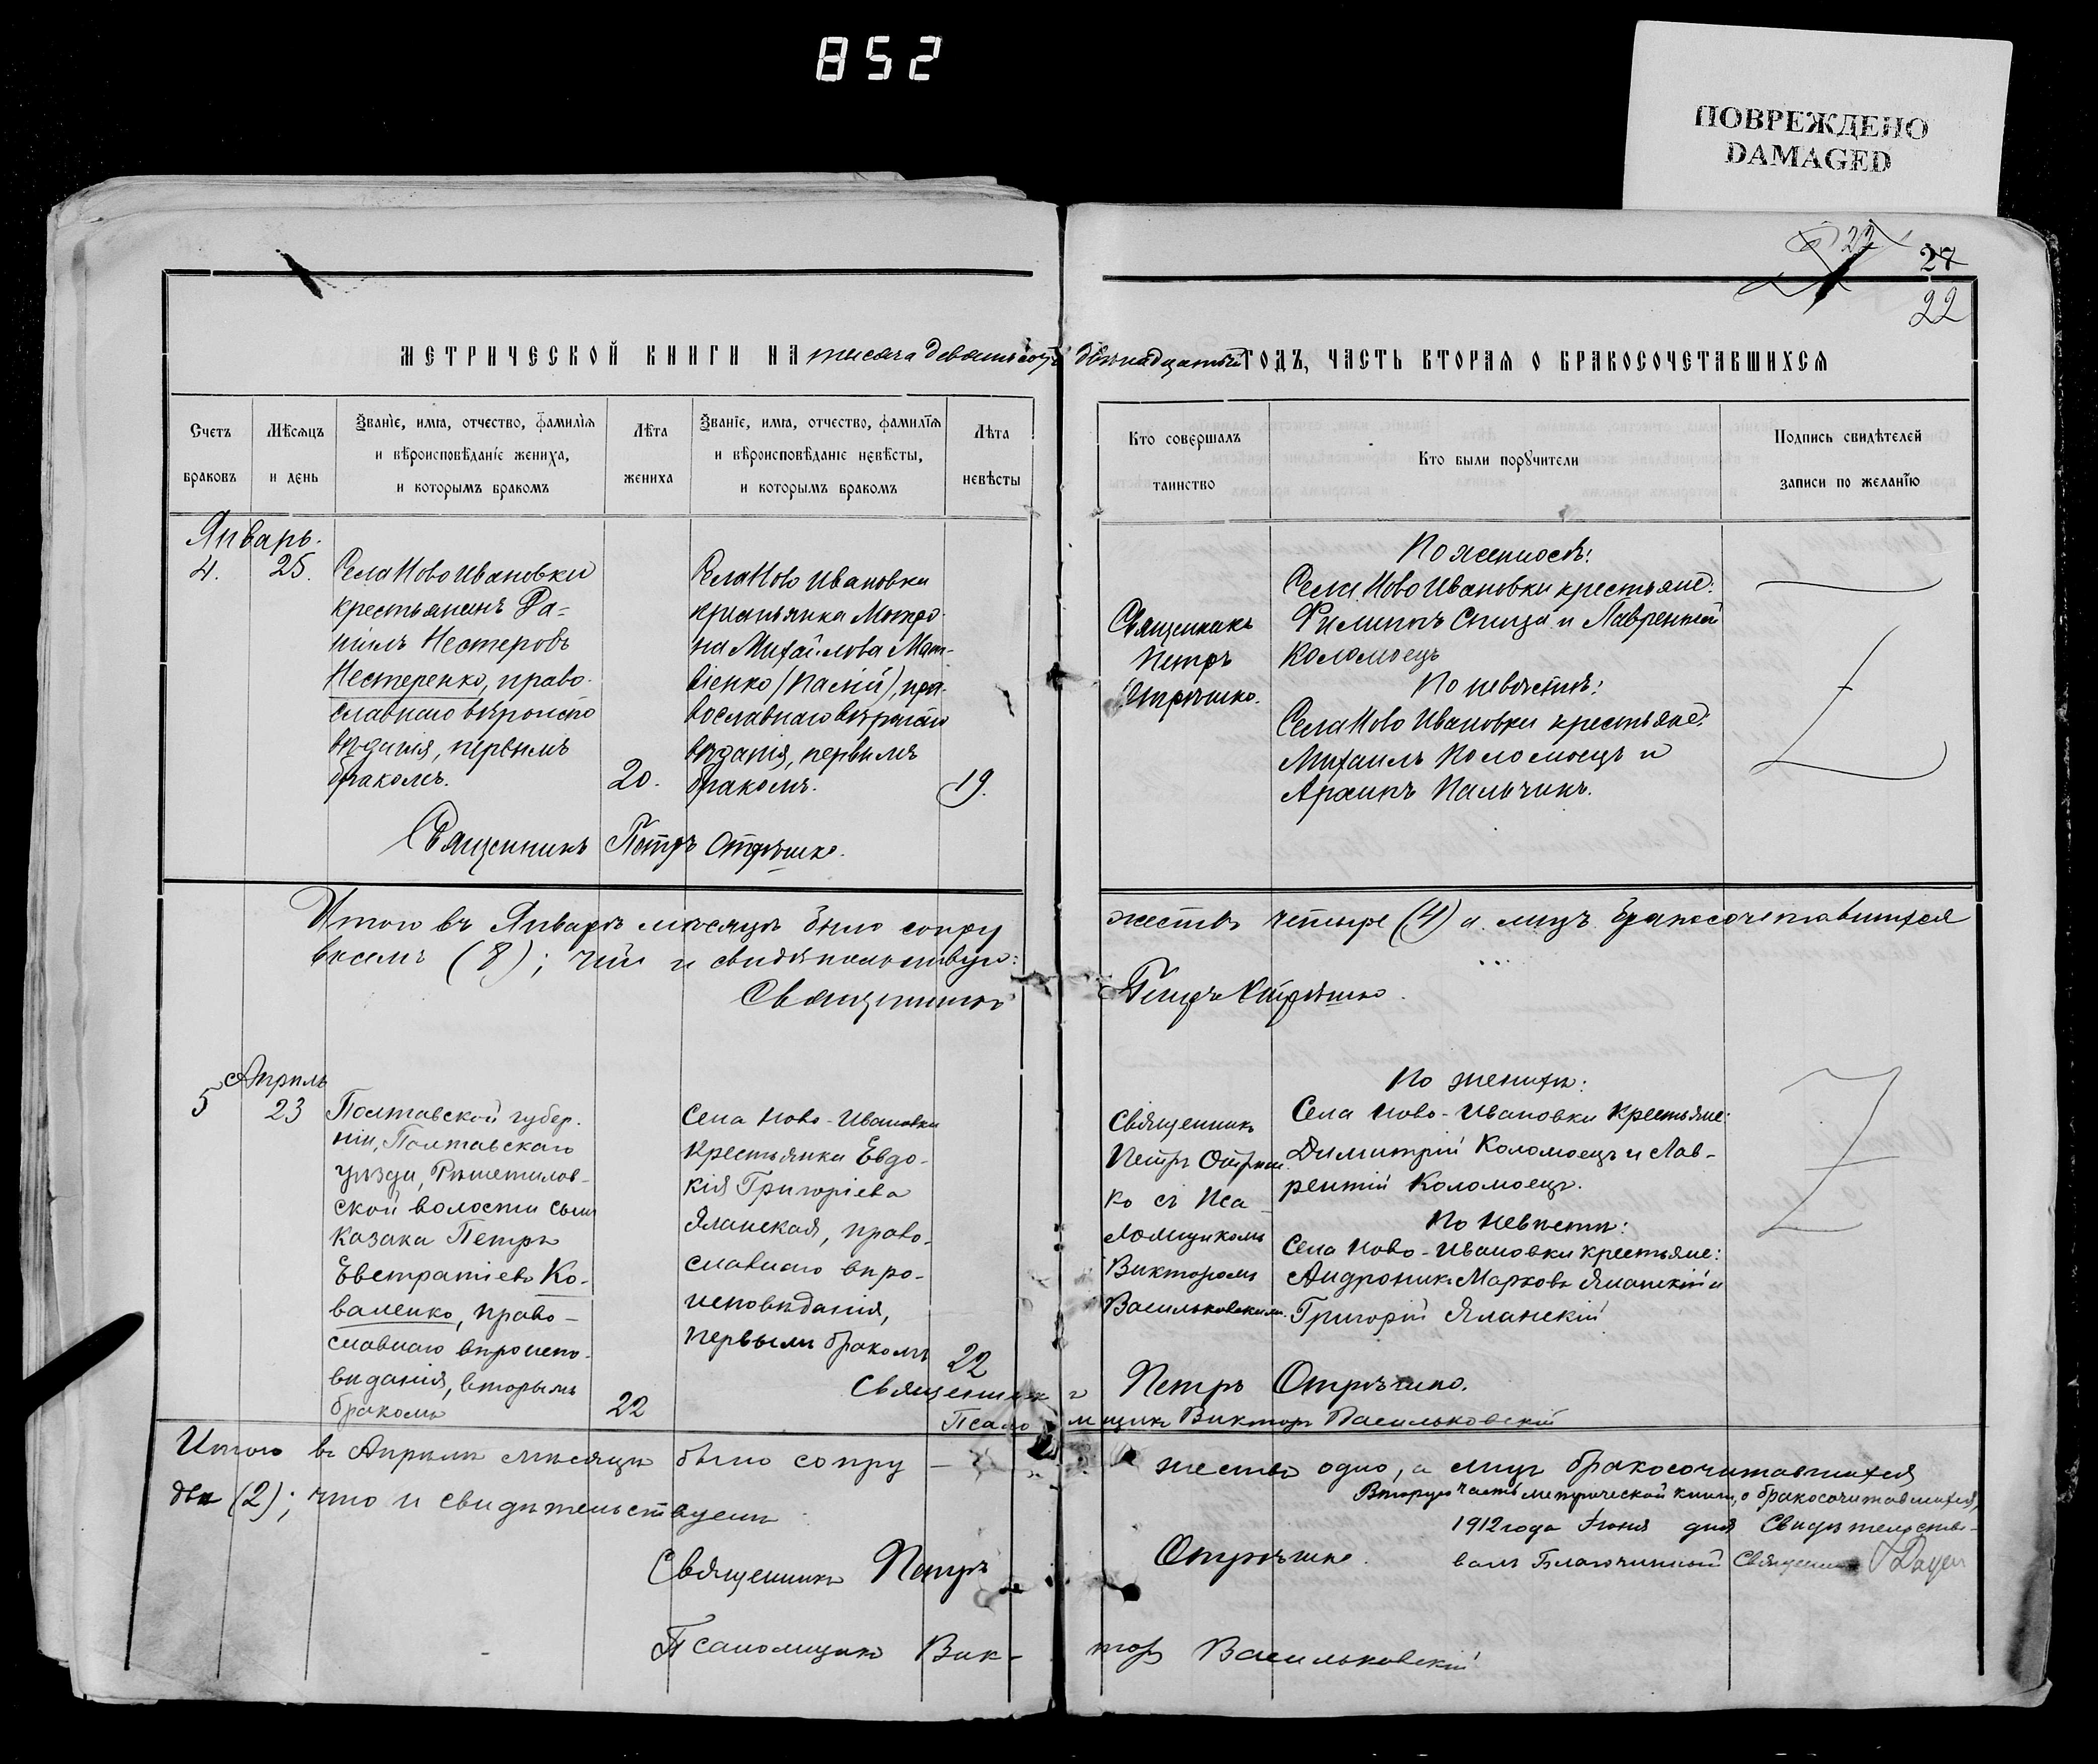 852
ПОВРЕЖДЕНО
DAMAGED
27
27
22
МЕТРИЧЕСКОЙ КНИГИ НА тысяча девятьсотъ двѣнадцатый ГОДЪ, ЧАСТЬ ВТОРАЯ О БРАКОСОЧЕТАВШИХСЯ
Счетъ
браковъ
Мѣсяцъ
и день
Званіе, имя, отчество, фамилія
и вѣроисповѣданіе жениха,
и которымъ бракомъ
Лѣта
жениха
Званіе, имя, отчество, фамилія
и вѣроисповѣданіе невѣсты,
и которымъ бракомъ
Лѣта
невѣсты
Кто совершалъ
таинство
Кто были поручители
Подпись свидѣтелей
записи по желанію
Январь.
4.
25.
Села Ново Ивановки
крестьянинъ Да=
ніилъ Нестеровъ
Нестеренко, право-
славнаго вѣроиспо
вѣданія, первымъ
бракомъ.
20.
Села Ново Ивановки
крестьянка Матро
на Михайлова Мат-
віенко (Палій), пра-
вославнаго вѣроиспо
вѣданія, первымъ
бракомъ.
19.
Священникъ
Петръ
Отрѣшко.
По женихѣ:
Села Ново Ивановки крестьяне:
Филиппъ Спица и Лаврентій
Коломоецъ
По невѣстѣ:
Села Ново Ивановки крестьяне:
Михаилъ Коломоецъ и
Пальчикъ.
Священникъ Петръ Отрѣшко.
Итого въ Январѣ мѣсяцѣ было супру
жествъ четыре (4) а лицъ бракосочетавшихся
восемь (8); что и свидѣтельствую:
Священникъ Петръ Отрѣшко.
Апрѣль
5
23
Полтавской губер.
ніи, Полтавскаго
уѣзда, Рѣшетилов-
ской волости сынъ
казака Петръ
Евстратіевъ Ко-
валенко, право-
славнаго вѣроиспо-
вѣданія, вторымъ
бракомъ
22
Села Ново-Ивановки
крестьянка Евдо-
кія Григоріева
Яланская, право-
славнаго вѣро-
исповѣданія,
первымъ бракомъ
22
Священникъ
Петръ Отрѣш
ко съ Пса
ломщикомъ
Викторомъ
Васильковскимъ.
По женихѣ:
Села Ново-Ивановки крестьяне:
Димитрій Коломоецъ и Лав-
рентій Коломоецъ.
По невѣстѣ:
Села Ново-Ивановки крестьяне:
Андроникъ Марковъ Яланскій и
Григорій Яланскій
Священникъ Петръ Отрѣшко.
Псаломщикъ Викторъ Васильковскій
Итого въ Апрѣлѣ мѣсяцѣ было супру-
жество одно, а лицъ бракосочетавшихся
два (2); что и свидѣтельствуемъ
Священникъ Петръ Отрѣшко.
Псаломщикъ Вик-
торъ Васильковскій
Вторую часть метрической книги, о бракосочетавшихся,
1912 года Іюня дня Свидѣтельство-
валъ Благочинный Священникъ